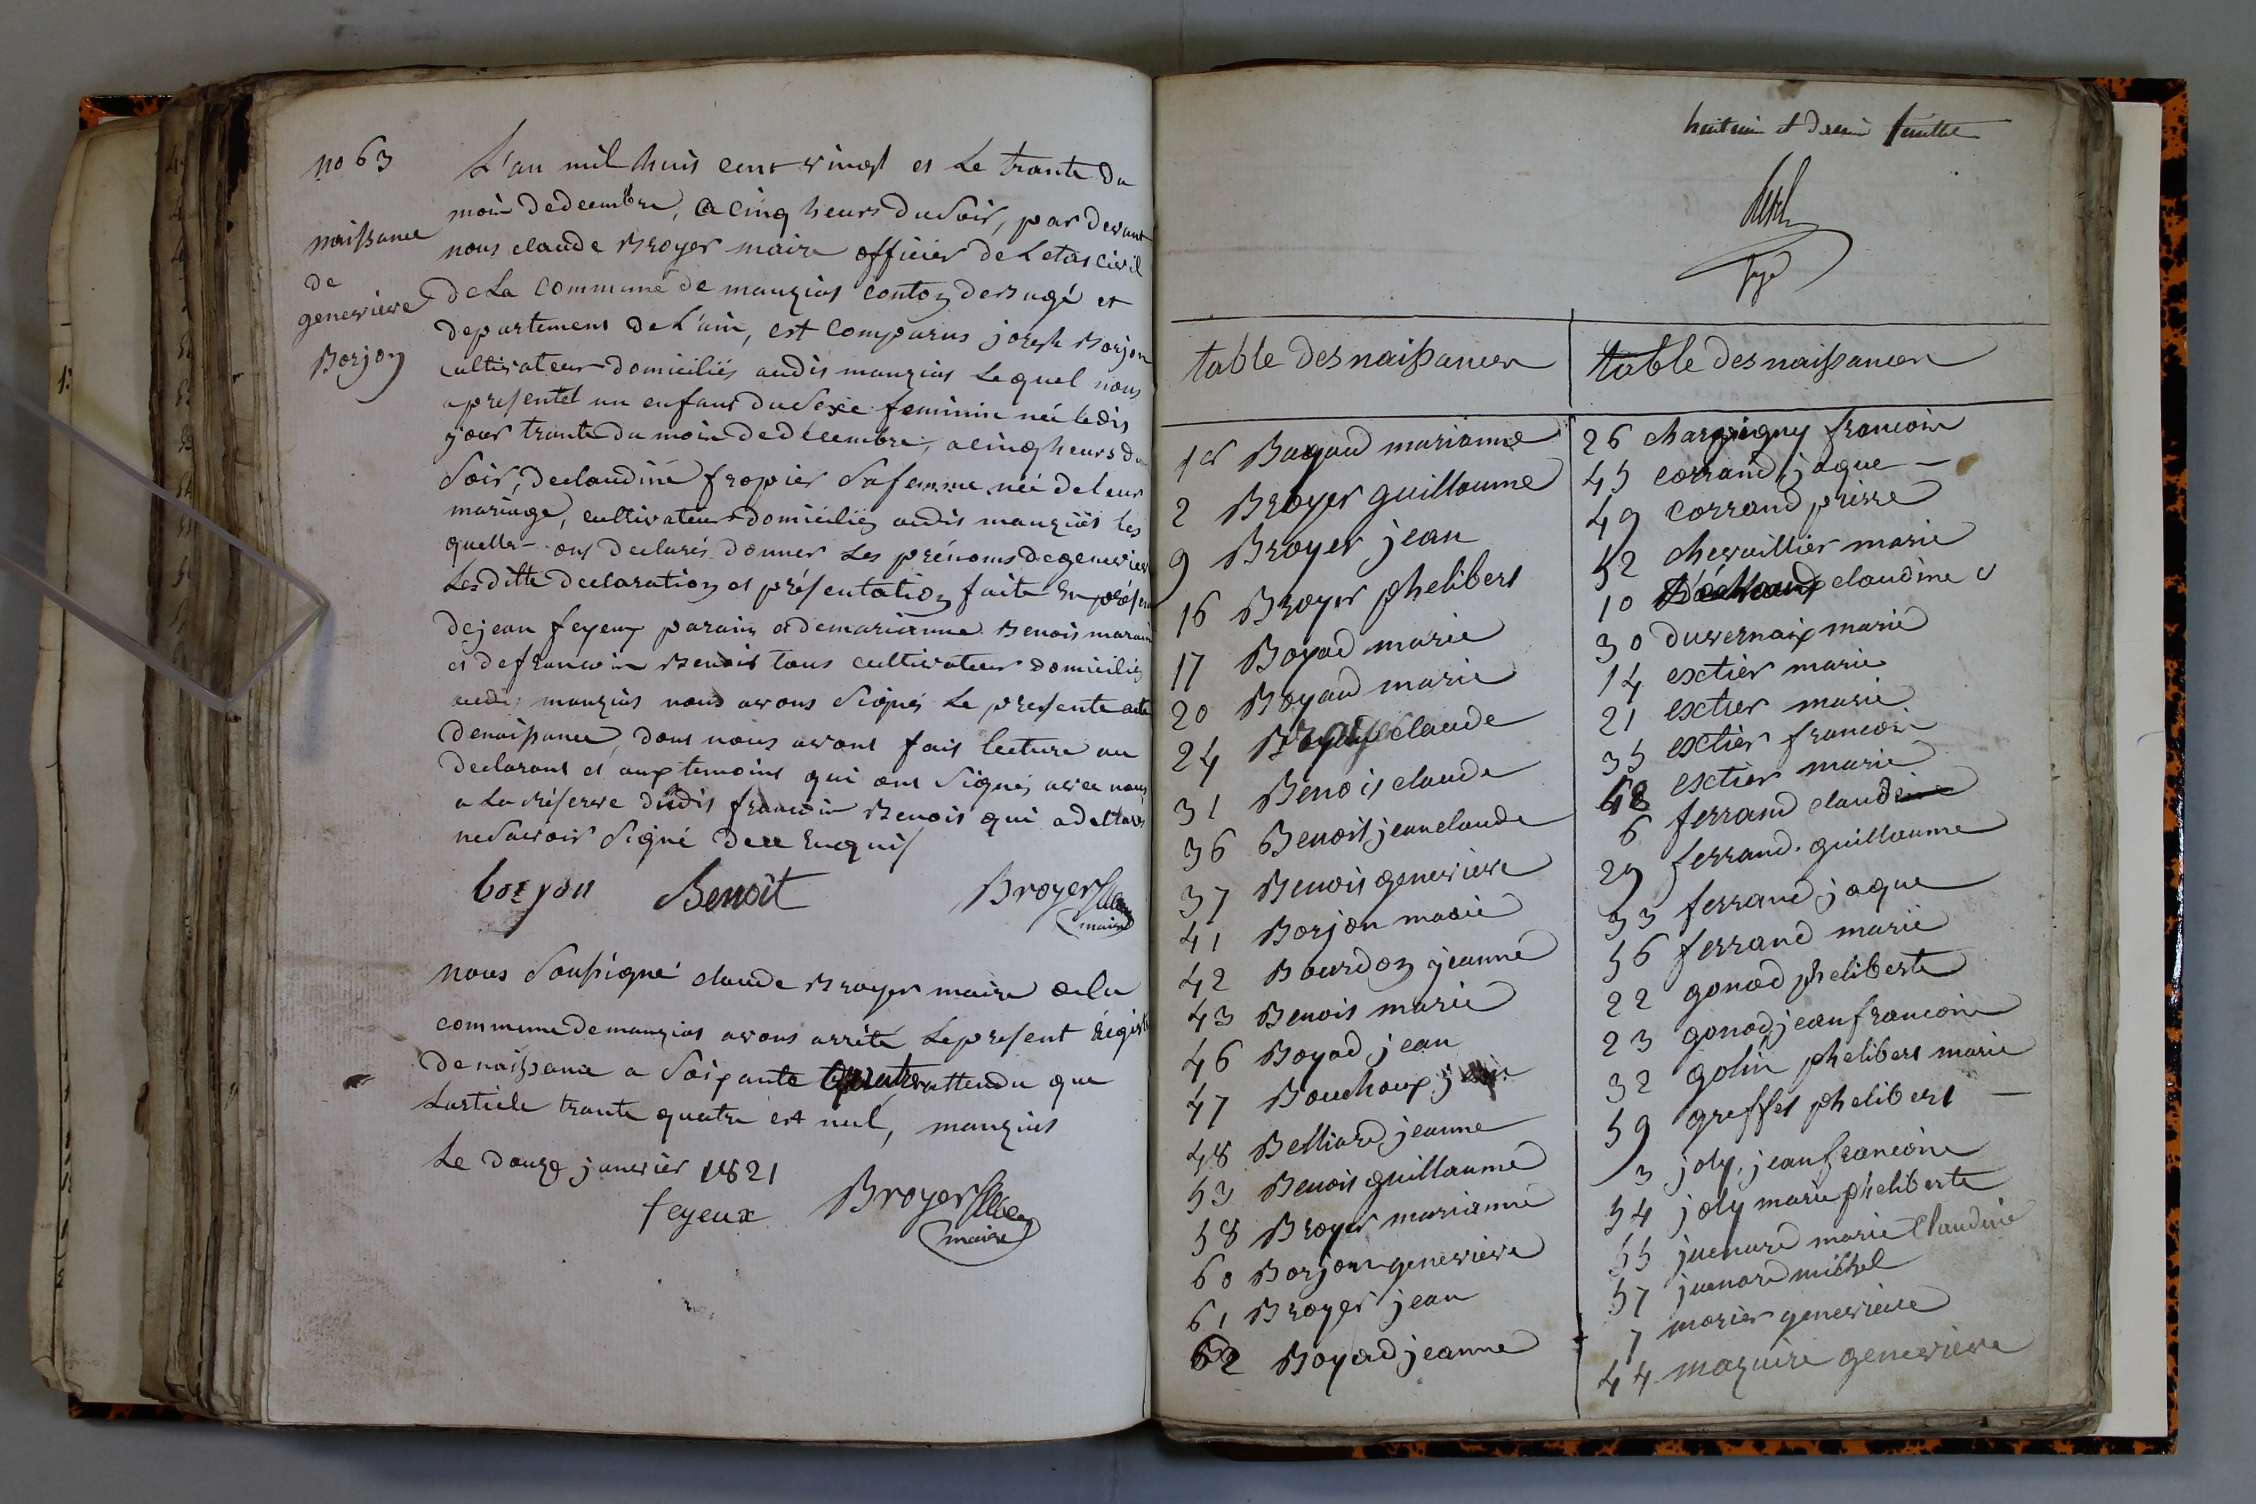 no 63
naissance
de
genevieve
Borjon
L'an mil huit cent vingt et Le trante du
mois de decembre, a cinq heurs du soir, par devant
nous claude Broyer maire officier de Letat civil
de La commune de manziat conton de Bagé et
departement de L'ain, est comparus joseph Borjon
cultivateur domiciliés audit manziat Lequel nous
a presentet un enfant du sexe feminin née ledit
jour trante du mois de decembre, a cinq heurs du
soir, de claudine fropier sa famme née de leur
mariage, cultivateur domiciliés audit manziat les
quelles ont declarés donner Les prénoms de genevieve
Les ditte declaration et présentation faite En présen
de jean feyeux parain et de marianne Benois marain
et de francois Benois tous cultivateur domiciliés
audit manziat nous avons signés Le presente acte
de naissance, dont nous avons fait lecture au
declarant et aux temoins qui ont signés avec nous
a La réserve dudit francois Benois qui a dellaré
ne savoir signé de ce Enquis
borjon Benoît Broyer
maire
nous soussigné claude Broyer maire de la
commune de manziat avons arrêté Le present Régist
de naissance a soixante quatre attendu que
L'article trante quatre est nul, manziat
Le douze janvier 1821
feyeux Broyer
maire
huitieme et dernier feuillet
table des naissances
1er Bayard marianne
2 Broyer guillaume
9 Broyer jean
16 Broyer phelibert
17 Boyad marie
20 Boyard marie
24 Broyer claude
31 Benois claude
36 Benoit jean claude
37 Benois genevieve
41 Borjon marie
42 Bourdon jeanne
43 Benois marie
46 Boyad jean
47 Bouchoux
48 Belliard jeanne
53 Benois guillaume
58 Broyer marianne
60 Borjon genevieve
61 Broyer jean
62 Boyard jeanne
table des naissances
26 chavrigny francois
45 corrand jaque
49 corrand pierre
52 chevaillier marie
10 claudine
30 duvernaix marie
14 extier marie
21 extier marie
35 extier francois
extier marie
6 ferrand claudine
29 ferrand guillaume
33 ferrand jaque
56 ferrand marie
22 gonod pheliberte
23 gonod jean francois
32 golin phelibert marie
59 greffet phelibert
3 joly jean francois
54 joly marie pheliberte
55 juenard marie Claudine
57 juenard michel
7 morier genevieve
44 mazuire genevieve